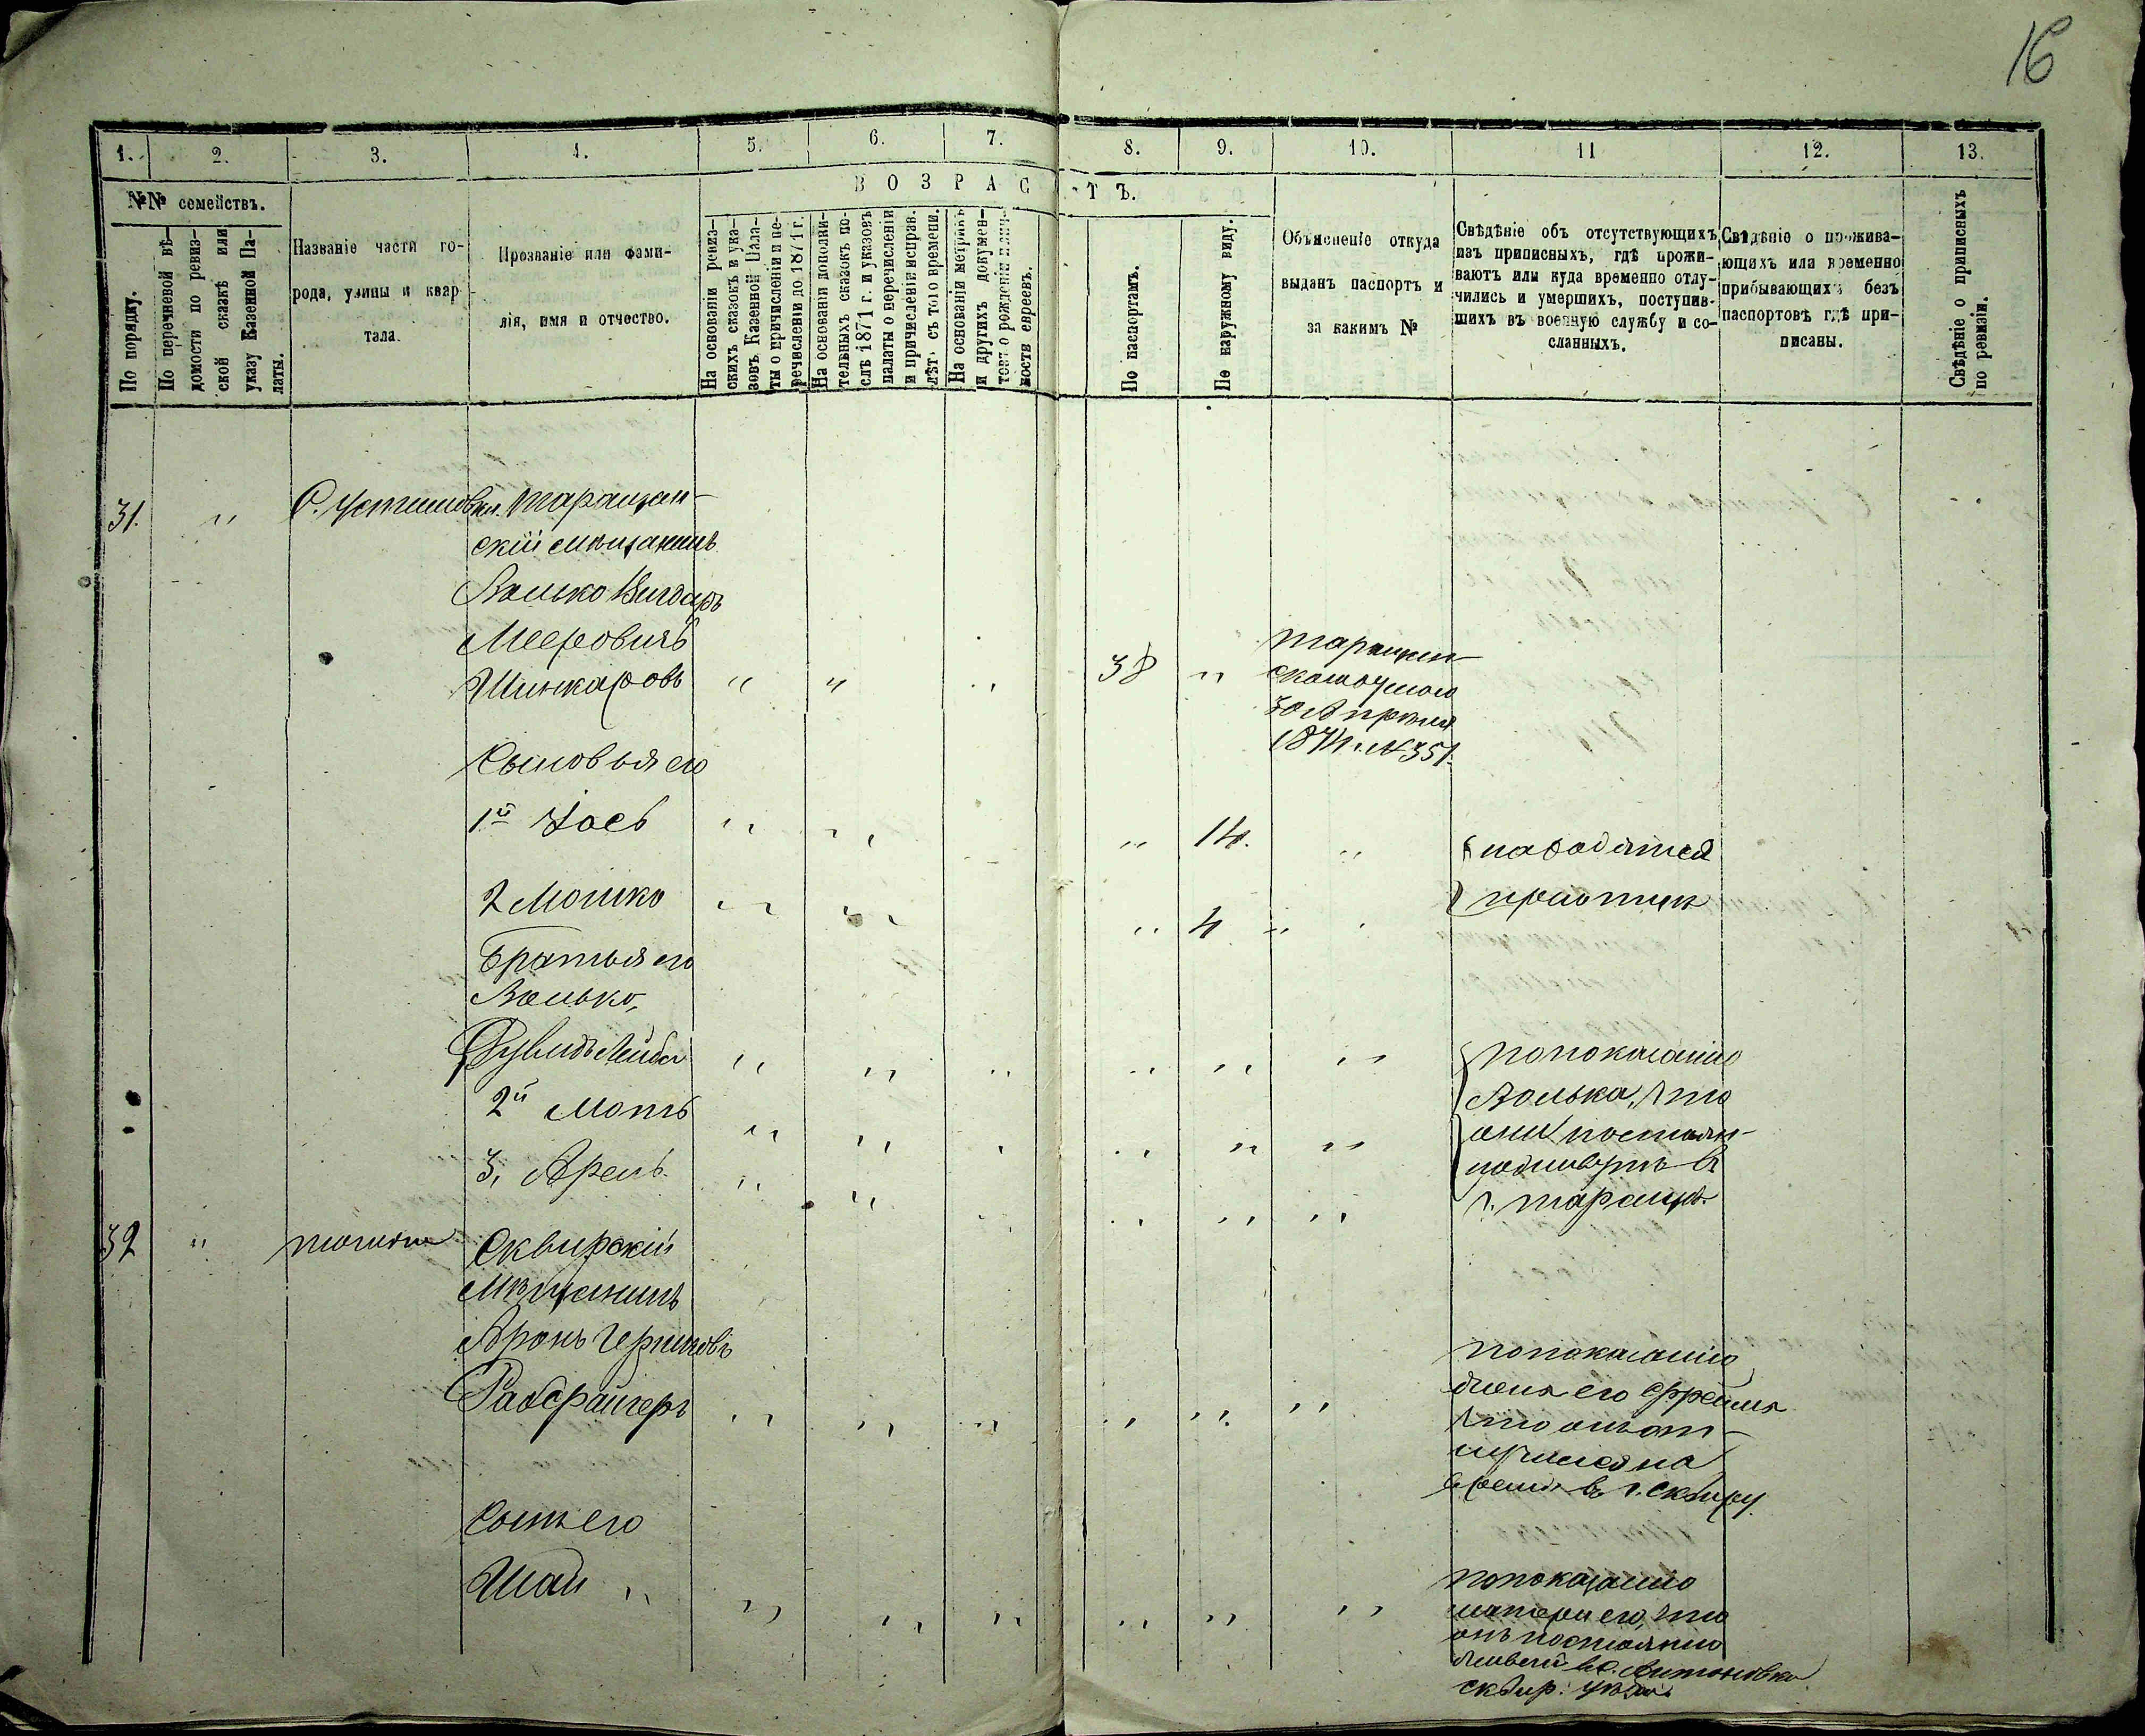 16
1.
2.
3.
4.
5.
6.
7.
8.
9.
10.
11
12.
13.
№№ семействъ.
В О З Р А С Т Ъ.
По порядку.
По перечневой вѣ-
домости по ревиз-
ской сказкѣ или
указу Казенной Па-
латы.
Названіе части го-
рода, улицы и квар
тала.
Прозваніе или фами-
лія, имя и отчество.
На основаніи ревиз-
скихъ сказокъ и ука-
зовъ Казенной Пала-
ты о причисленіи и пе-
речисленіи до 1871 г.
На основаніи дополни-
тельныхъ сказокъ по-
слѣ 1871 г. и указовъ
палаты о перечисленіи
и причисленіи исправ.
лѣт. съ того времени.
На основаніи метрикъ
и другихъ докумен-
товъ о рожденіи
ности евреевъ.
По паспортамъ.
По наружному виду.
Объясненіе откуда
выданъ паспортъ и
за какимъ №
Свѣдѣніе объ отсутствующихъ
изъ приписныхъ, гдѣ прожи-
ваютъ или куда временно отлу-
чились и умершихъ, поступив-
шихъ въ военную службу и со-
сланныхъ.
Свѣдѣніе о прожива-
ющихъ или временно
прибывающихъ безъ
паспортовъ гдѣ при-
писаны.
Свѣдѣніе о приписныхъ
по ревизіи.
31. " С. Устимовка. Таращан-
скій мѣщанинъ
Волько Вигдоръ
Мееровичъ
Шинкаровъ " " " 38 "
Таращан-
30 Апрѣля
1874 г. № 351.
Сыновья его
1й Іось " " " 14. " находятся
2 Мошко " " " 4 " при отцѣ
Братья его
Волько,
Дувидъ Лейба " " " " " "
по показанію
Волька, что
2й Моть " " " " " "
они постоян-
но живутъ в
3, Арель. " " " " " "
г. Тараще.
32 " тоже Сквирскій
мѣщанинъ
Аронъ Гершковъ
" " " " " "
по показанію
жены его
что онъ от-
лучился на
время въ г. Сквиру.
Сынъ его
Шая " " " " " " "
по показанію
матери его, что
онъ постоянно
живетъ въ с. Антоновка
Сквир: уѣзда.